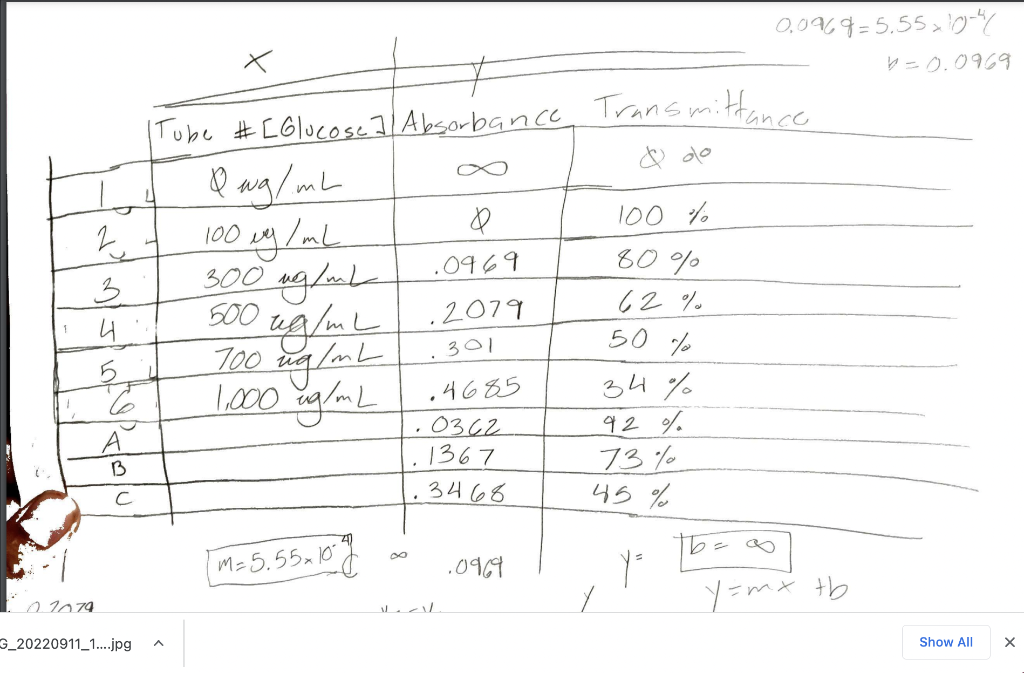 0.0969 = 5.55 x 10^-4(
b = 0.0969
x y
Tube # [Glucose] Absorbance Transmittance
1 0 ug/mL ∞ 0 %
2 100 ug/mL 0 100 %
3 300 ug/mL .0969 80 %
4 500 ug/mL .2079 62 %
5 700 ug/mL .301 50 %
6 1,000 ug/mL .4685 34 %
A .0362 92 %
B .1367 73 %
C .3468 45 %
m=5.55x10^-4 ∞ .0969 y= b= ∞
y=mx +b
0.2079
G_20220911_1....jpg Show All